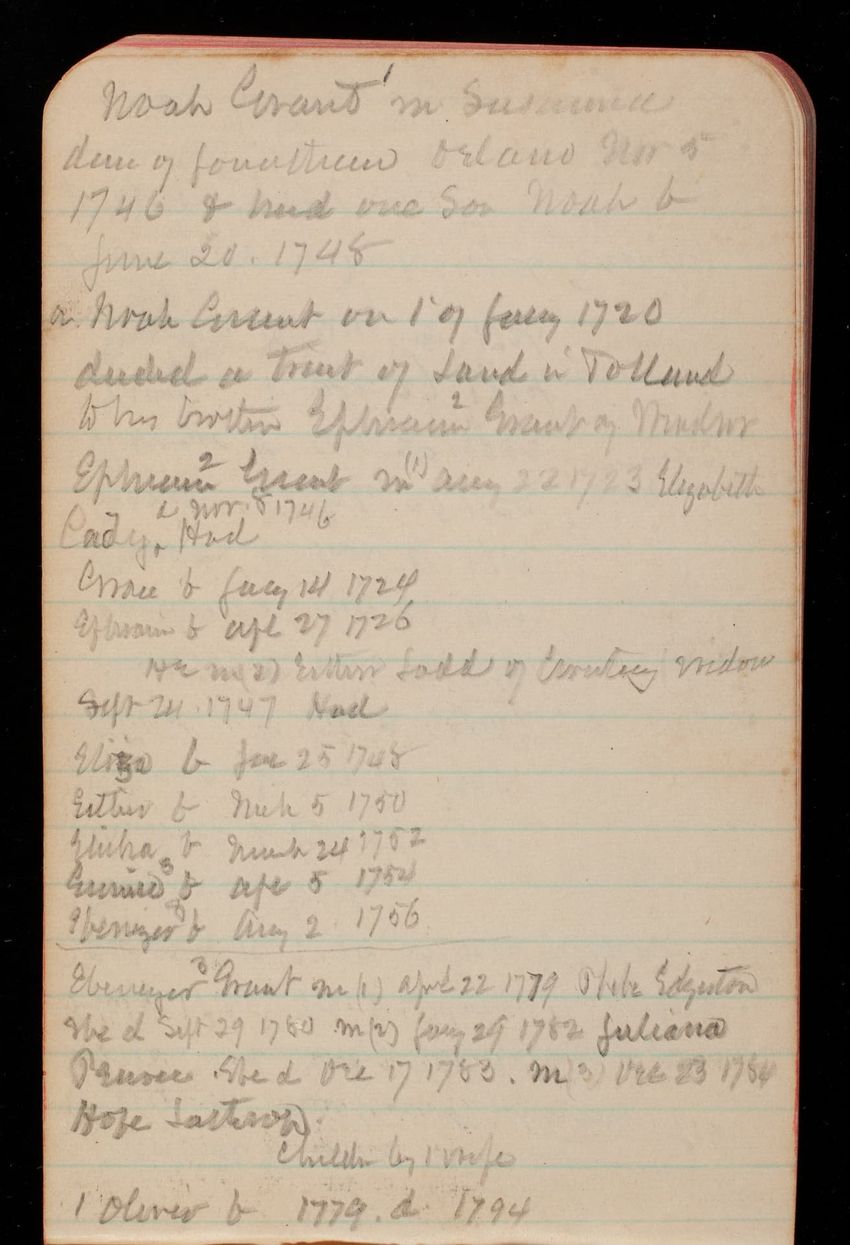 Noah Grant m Susanna
dau of Jonathan Delano Nov 5
1746 & had one Son Noah b
June 20. 1748
Noah Grant on 1 of Jany 1720
deeded a tract of Land in Tolland
to his brother Ephraim 2 Grant of Windsor
Ephraim 2 Grant m (1) Aug 22 1723 Elizabeth
d Nov. 5 1746
Cady. Had
Grace b Jany 14 1724
Ephraim b Apl 27 1726
He m (2) Esther Ladd of Coventry widow
Sept 24 1747 Had
Eliza b Jne 25 1748
Esther b Mch 5 1750
Elisha b March 24 1752
3 b Apl 5 1754
Ebenezer 3 b Aug 2 1756
Ebenezer 3 Grant m (1) Apl 22 1779 Phebe Edgerton
She d Sept 29 1780 m (2) Jany 29 1782 Juliana
She d Dec 17 1783. m (3) Dec 23 1784
Hope Lathrop.
Childn by 1 wife
1 Oliver b 1779. d. 1794